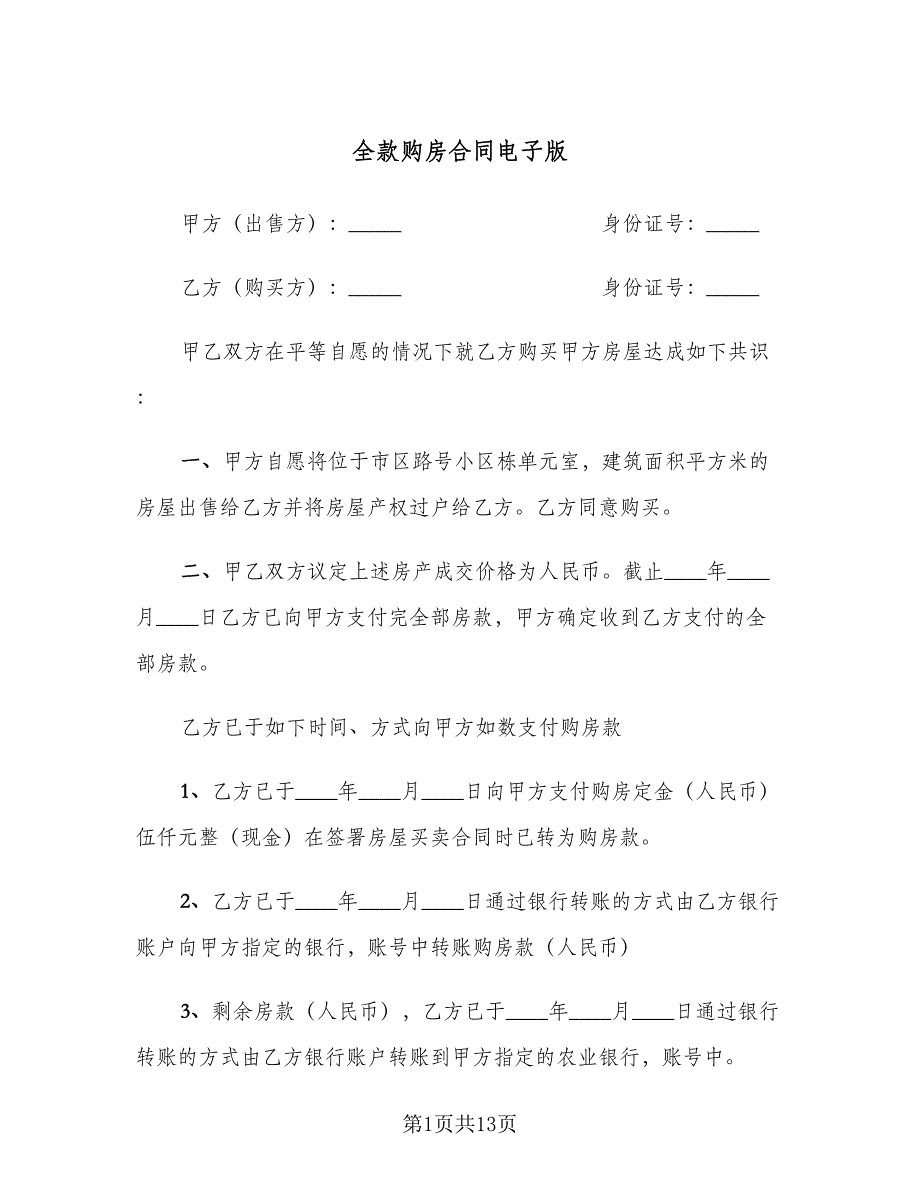 全款购房合同电子版
甲方（出售方）：_____ 身份证号：_____
乙方（购买方）：_____ 身份证号：_____
甲乙双方在平等自愿的情况下就乙方购买甲方房屋达成如下共识
：
一、甲方自愿将位于市区路号小区栋单元室，建筑面积平方米的
房屋出售给乙方并将房屋产权过户给乙方。乙方同意购买。
二、甲乙双方议定上述房产成交价格为人民币。截止____年____
月____日乙方已向甲方支付完全部房款，甲方确定收到乙方支付的全
部房款。
乙方已于如下时间、方式向甲方如数支付购房款
1、乙方已于____年____月____日向甲方支付购房定金（人民币）
伍仟元整（现金）在签署房屋买卖合同时已转为购房款。
2、乙方已于____年____月____日通过银行转账的方式由乙方银行
账户向甲方指定的银行，账号中转账购房款（人民币）
3、剩余房款（人民币），乙方已于____年____月____日通过银行
转账的方式由乙方银行账户转账到甲方指定的农业银行，账号中。
第1页共13页